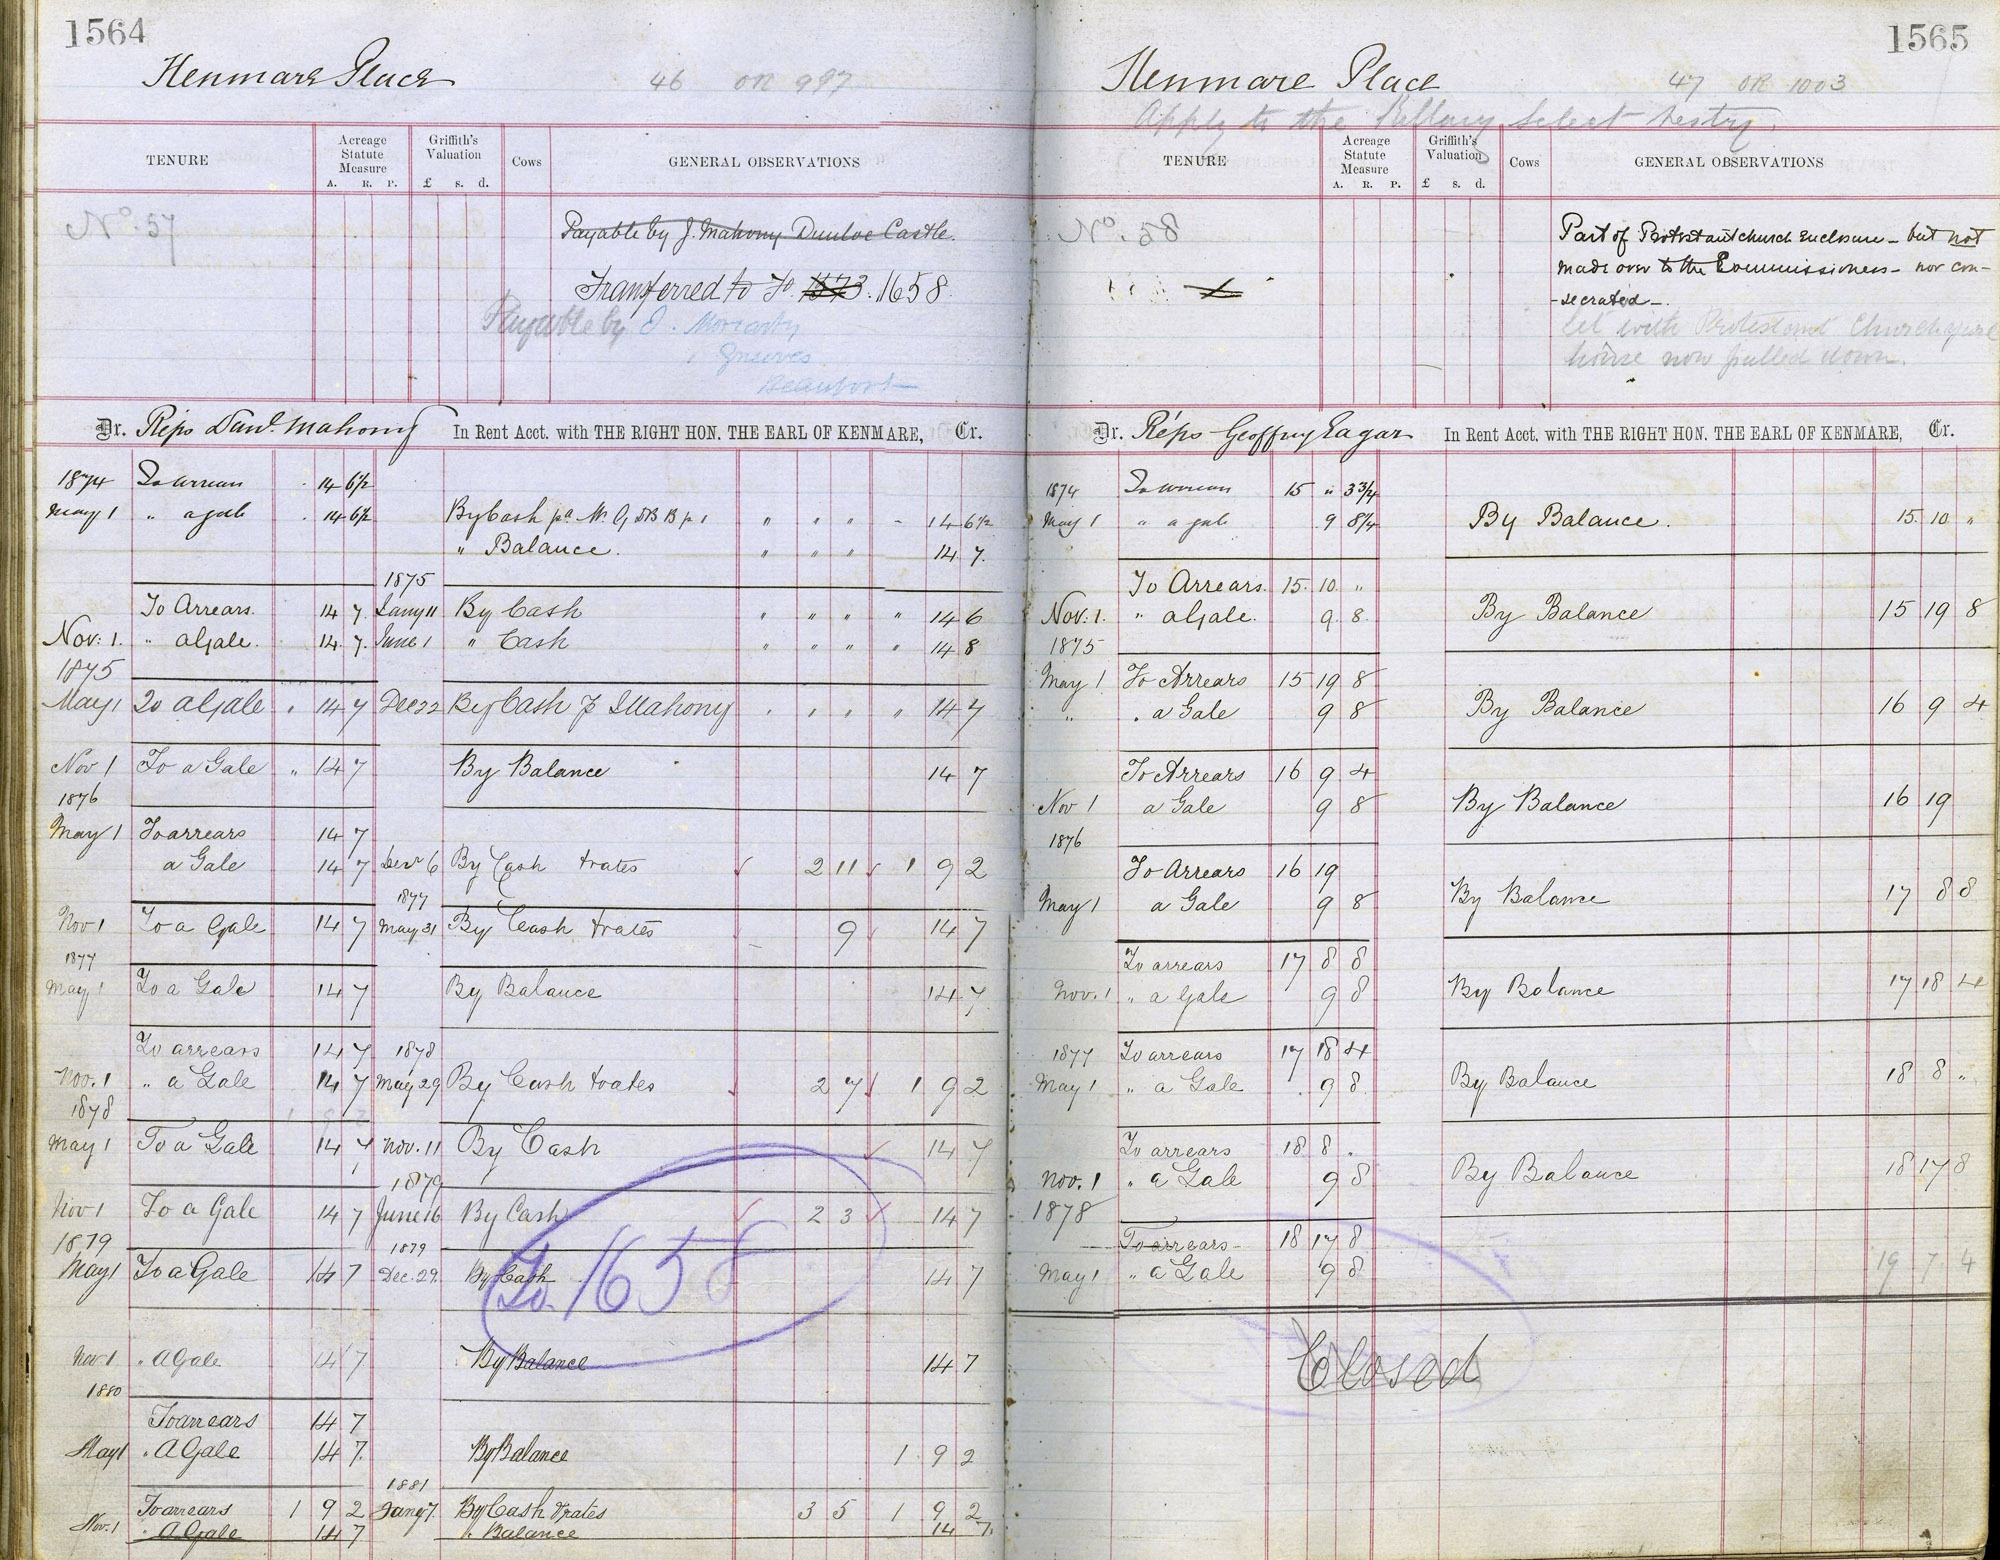 1564
Kenmare Place
46 OR 997
TENURE
Acreage Statute Measure
A. R. P.
Griffith's Valuation
£ s. d.
Cows
GENERAL OBSERVATIONS
No. 57
Payable by J. Mahony Dunloe Castle.
Transferred to Fo 1573. 1658
Payable by J. Moriarty
Beaufort
Dr. Reps Danl. Mahony In Rent Acct. with THE RIGHT HON. THE EARL OF KENMARE, Cr.
1874 To arrears 14 6½
May 1 " a gale 14 6½ By Cash " " " - 14 6½
" Balance. " " " 14 7.
1875
To Arrears. 14 7. Jany 11 By Cash " " " " 14 6
Nov: 1. " a Gale. 14 7. June 1 " Cash " " " " 14 8
1875
May 1 To a Gale 14 7 Dec 22 By Cash J Mahony " " " " 14 7
Nov 1 To a Gale " 14 7 By Balance 14 7
1876
May 1 To arrears 14 7
a Gale 14 7 Decr 6 By Cash & rates 2 11 1 9 2
1877
Nov 1 To a Gale 14 7 May 31 By Cash & rates 9 14 7
1877
May 1 To a Gale 14 7 By Balance 14 7
To arrears 14 7 1878
Nov. 1 " a Gale 14 7 May 29 By Cash & rates 2 7 1 9 2
1878
May 1 To a Gale 14 7 Nov. 11 By Cash 14 7
1879
Nov 1 To a Gale 14 7 June 16 By Cash 2 3 14 7
1879 1879
May 1 To a Gale 14 7 Dec. 29. By Cash 14 7
Fo. 1658
Nov 1 " A Gale 14 7 By Balance 14 7
1880
To arrears 14 7
May 1 " A Gale 14 7. By Balance 1 9 2
1881
To arrears 1 9 2 Jany 7. By Cash & rates 3 5 1 9 2
Nov. 1 " A Gale 14 7 " Balance 14 7.
1565
Kenmare Place
47 OR 1003
Apply to the Killarney Select Vestry.
TENURE
Acreage Statute Measure
A. R. P.
Griffith's Valuation
£ s. d.
Cows
GENERAL OBSERVATIONS
No. 58
Part of Protestant church enclosure - but not
made over to the Commissioners - nor con-
-secrated -.
Let with Protestant Church
house now pulled down.
Dr. Reps Geoffrey Eagar In Rent Acct. with THE RIGHT HON. THE EARL OF KENMARE, Cr.
1874 To arrears 15 " 3¾
May 1 " a gale 9 8¼ By Balance. 15. 10 "
To Arrears. 15. 10. "
Nov. 1. " a Gale. 9. 8. By Balance 15 19 8
1875
May 1 To Arrears 15 19 8
" . a Gale 9 8 By Balance 16 9 4
To Arrears 16 9 4
Nov 1 a Gale 9 8 By Balance 16 19
1876
To Arrears 16 19
May 1 a Gale 9 8 By Balance 17 8 8
To arrears 17 8 8
Nov. 1 " a Gale 9 8 By Balance 17 18 4
1877 To arrears 17 18 4
May 1 " a Gale 9 8 By Balance 18 8 "
To arrears 18 8 .
Nov. 1 " a Gale 9 8 By Balance 18 17 8
1878
To arrears 18 17 8
May 1 " a Gale 9 8 19 7 4
Closed